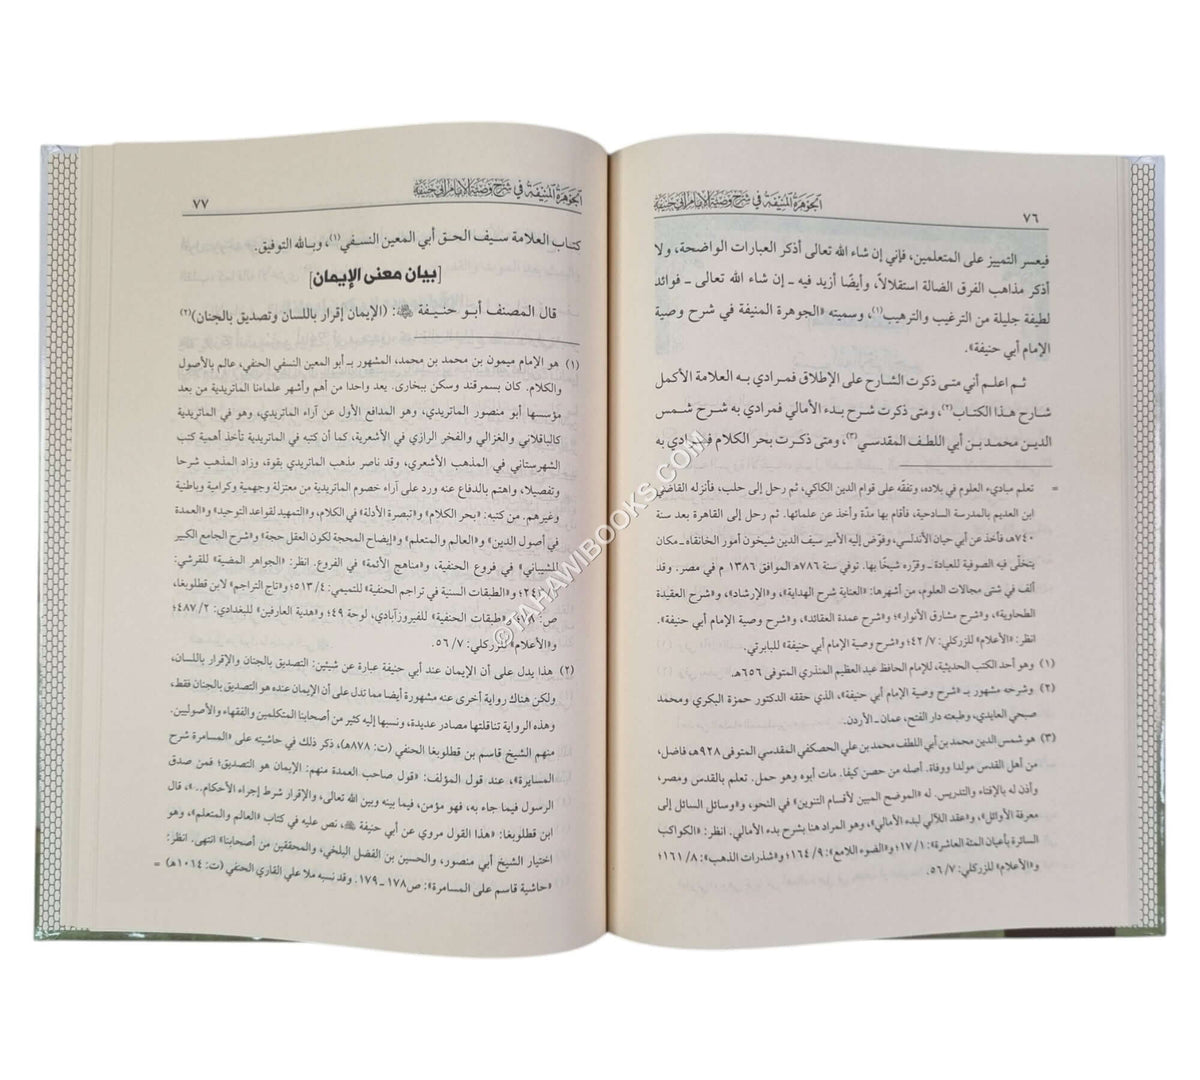 الجوهرة المنيفة في شرح وصية الإمام أبي حنيفة
٧٦
فيعسر التمييز على المتعلمين، فإني إن شاء الله تعالى أذكر العبارات الواضحة، ولا
أذكر مذاهب الفرق الضالة استقلالًا، وأيضًا أزيد فيه ـ إن شاء الله تعالى ـ فوائد
لطيفة جليلة من الترغيب والترهيب(١)، وسميته «الجوهرة المنيفة في شرح وصية
الإمام أبي حنيفة».
ثم اعلم أني متى ذكرت الشارح على الإطلاق فمرادي به العلامة الأكمل
شارح هذا الكتاب(٢)، ومتى ذكرت شرح بدء الأمالي فمرادي به شرح شمس
الدين محمد بن أبي اللطف المقدسي(٣)، ومتى ذكرت بحر الكلام فمرادي به
= تعلم مبادىء العلوم في بلاده، وتفقّه على قوام الدين الكاكي، ثم رحل إلى حلب، فأنزله القاضي
ابن العديم بالمدرسة السادحية، فأقام بها مدّة وأخذ عن علمائها. ثم رحل إلى القاهرة بعد سنة
٧٤٠هـ فأخذ عن أبي حيان الأندلسي، وفوّض إليه الأمير سيف الدين شيخون أمور الخانقاه ـ مكان
يتخلّى فيه الصوفية للعبادة ـ وقرّره شيخًا بها. توفي سنة ٧٨٦هـ الموافق ١٣٨٦ م في مصر. وقد
ألف في شتى مجالات العلوم، من أشهرها: «العناية شرح الهداية»، و«الإرشاد»، و«شرح العقيدة
الطحاوية»، و«شرح مشارق الأنوار»؛ و«شرح عمدة العقائد»، و«شرح وصية الإمام أبي حنيفة».
انظر: «الأعلام» للزركلي: ٧/ ٤٢؛ و«شرح وصية الإمام أبي حنيفة» للبابرتي.
(١) وهو أحد الكتب الحديثية، للإمام الحافظ عبد العظيم المنذري المتوفى ٦٥٦هـ.
(٢) وشرحه مشهور بـ «شرح وصية الإمام أبي حنيفة»، الذي حققه الدكتور حمزة البكري ومحمد
صبحي العايدي، وطبعته دار الفتح، عمان ـ الأردن.
(٣) هو شمس الدين محمد بن أبي اللطف محمد بن علي الحصكفي المقدسي المتوفى ٩٢٨هـ، فاضل،
من أهل القدس مولدا ووفاة. أصله من حصن كيفا. مات أبوه وهو حمل. تعلم بالقدس ومصر،
وأذن له بالإفتاء والتدريس. له «الموضح المبين لأقسام التنوين» في النحو، و«وسائل السائل إلى
معرفة الأوائل»، و«عقد اللآلي لبدء الأمالي»، وهو المراد هنا بشرح بدء الأمالي. انظر: «الكواكب
السائرة بأعيان المئة العاشرة»: ١/ ١٧؛ و«الضوء اللامع»: ٩/ ١٦٤؛ و«شذرات الذهب»: ٨/ ١٦١؛
و«الأعلام» للزركلي: ٧/ ٥٦.
الجوهرة المنيفة في شرح وصية الإمام أبي حنيفة
٧٧
كتاب العلامة سيف الحق أبي المعين النسفي(١)، وبالله التوفيق.
[بيان معنى الإيمان]
قال المصنف أبو حنيفة رضي الله عنه: (الإيمان إقرار باللسان وتصديق بالجنان)(٢)
(١) هو الإمام ميمون بن محمد بن محمد، المشهور بـ أبو المعين النسفي الحنفي، عالم بالأصول
والكلام. كان بسمرقند وسكن ببخارى. يعد واحدا من أهم وأشهر علماءنا الماتريدية من بعد
مؤسسها أبو منصور الماتريدي، وهو المدافع الأول عن آراء الماتريدي، وهو في الماتريدية
كالباقلاني والغزالي والفخر الرازي في الأشعرية، كما أن كتبه في الماتريدية تأخذ أهمية كتب
الشهرستاني في المذهب الأشعري، وقد ناصر مذهب الماتريدي بقوة، وزاد المذهب شرحا
وتفصيلا، واهتم بالدفاع عنه ورد على آراء خصوم الماتريدية من معتزلة وجهمية وكرامية وباطنية
وغيرهم. من كتبه: «بحر الكلام» و«تبصرة الأدلة» في الكلام، و«التمهيد لقواعد التوحيد» و«العمدة
في أصول الدين» و«العالم والمتعلم» و«إيضاح المحجة لكون العقل حجة» و«شرح الجامع الكبير
للشيباني» في فروع الحنفية، و«مناهج الأئمة» في الفروع. انظر: «الجواهر المضية» للقرشي:
٢٤؛ و«الطبقات السنية في تراجم الحنفية» للتميمي: ٤/ ٥١٣؛ و«تاج التراجم» لابن قطلوبغا،
ص: ٧٨؛ و«طبقات الحنفية» للفيروزآبادي، لوحة ٤٩؛ و«هدية العارفين» للبغدادي: ٢/ ٤٨٧؛
و«الأعلام» للزركلي: ٧/ ٥٦.
(٢) هذا يدل على أن الإيمان عند أبي حنيفة عبارة عن شيئين: التصديق بالجنان والإقرار باللسان،
ولكن هناك رواية أخرى عنه مشهورة أيضا مما تدل على أن الإيمان عنده هو التصديق بالجنان فقط،
وهذه الرواية تناقلتها مصادر عديدة، ونسبها إليه كثير من أصحابنا المتكلمين والفقهاء والأصوليين.
منهم الشيخ قاسم بن قطلوبغا الحنفي (ت: ٨٧٨هـ)، ذكر ذلك في حاشيته على «المسامرة شرح
المسايرة»، عند قول المؤلف: «قول صاحب العمدة منهم: الإيمان هو التصديق؛ فمن صدق
الرسول فيما جاء به، فهو مؤمن، فيما بينه وبين الله تعالى، والإقرار شرط إجراء الأحكام...»، قال
ابن قطلوبغا: «هذا القول مروي عن أبي حنيفة رضي الله عنه، نص عليه في كتاب «العالم والمتعلم»، وهو
اختيار الشيخ أبي منصور، والحسين بن الفضل البلخي، والمحققين من أصحابنا» انتهى. انظر:
«حاشية قاسم على المسامرة»: ص١٧٨ ـ ١٧٩. وقد نسبه ملا علي القاري الحنفي (ت: ١٠١٤هـ) =
©TAHAWIBOOKS.COM